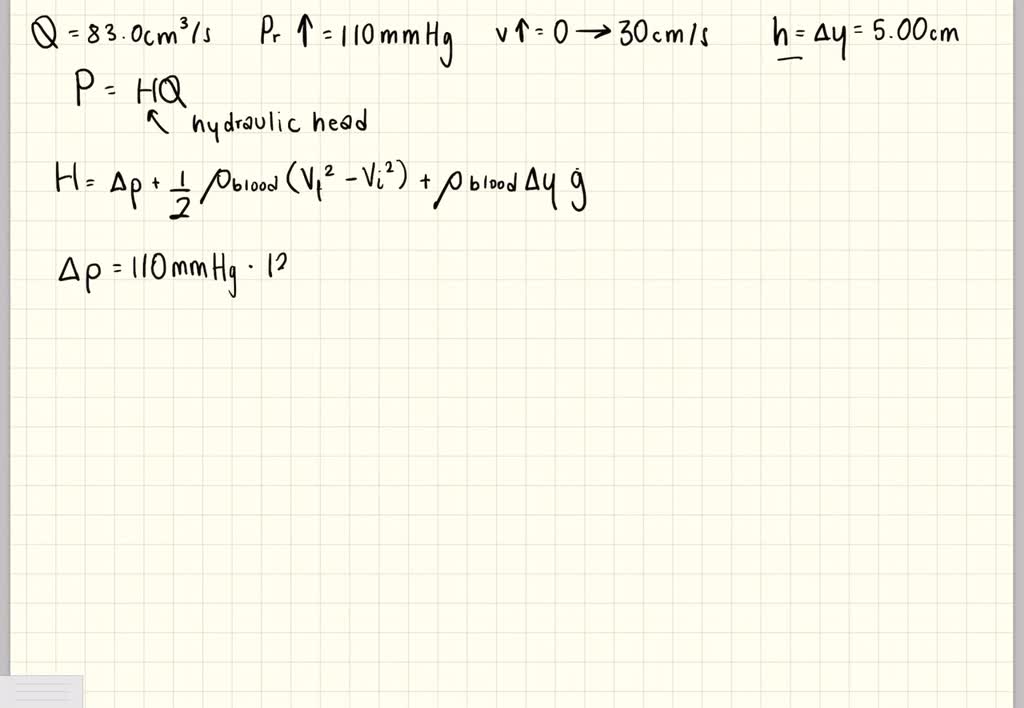 Q = 83.0cm³/s Pr ↑ = 110 mmHg v↑ = 0 → 30 cm/s h = Δy = 5.00cm
P = HQ
↖ hydraulic head
H = Δp + 1/2 ρblood (Vf² - Vi²) + ρblood Δy g
Δp = 110 mmHg · 12